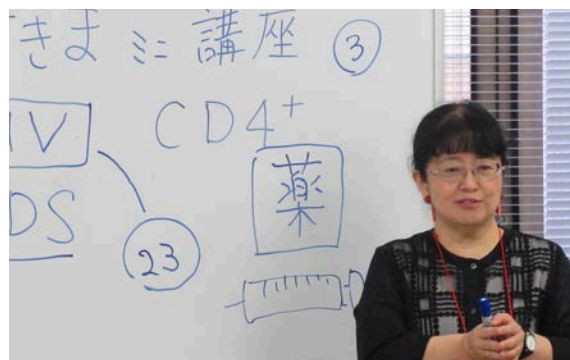 きま ミニ 講座 ③
IV CD4⁺
薬
DS
23